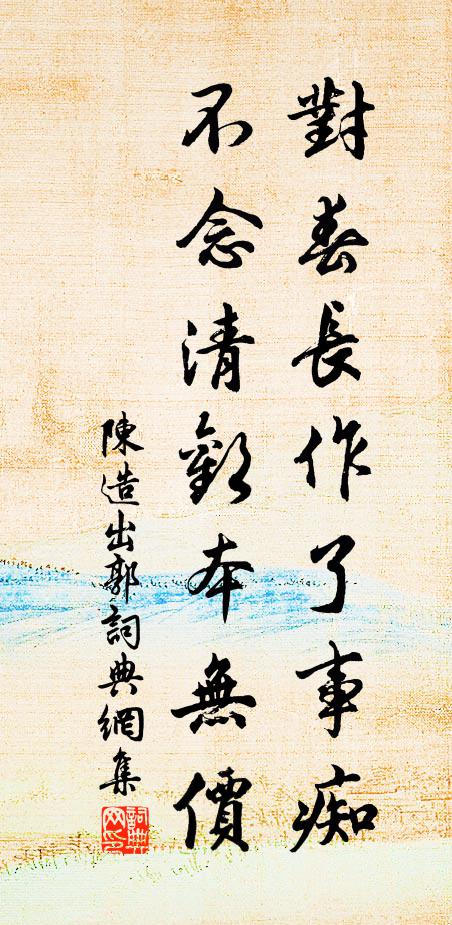 對春長作了事痴
不念清歡本無價
陳造出郭詞典網集
詞典網印